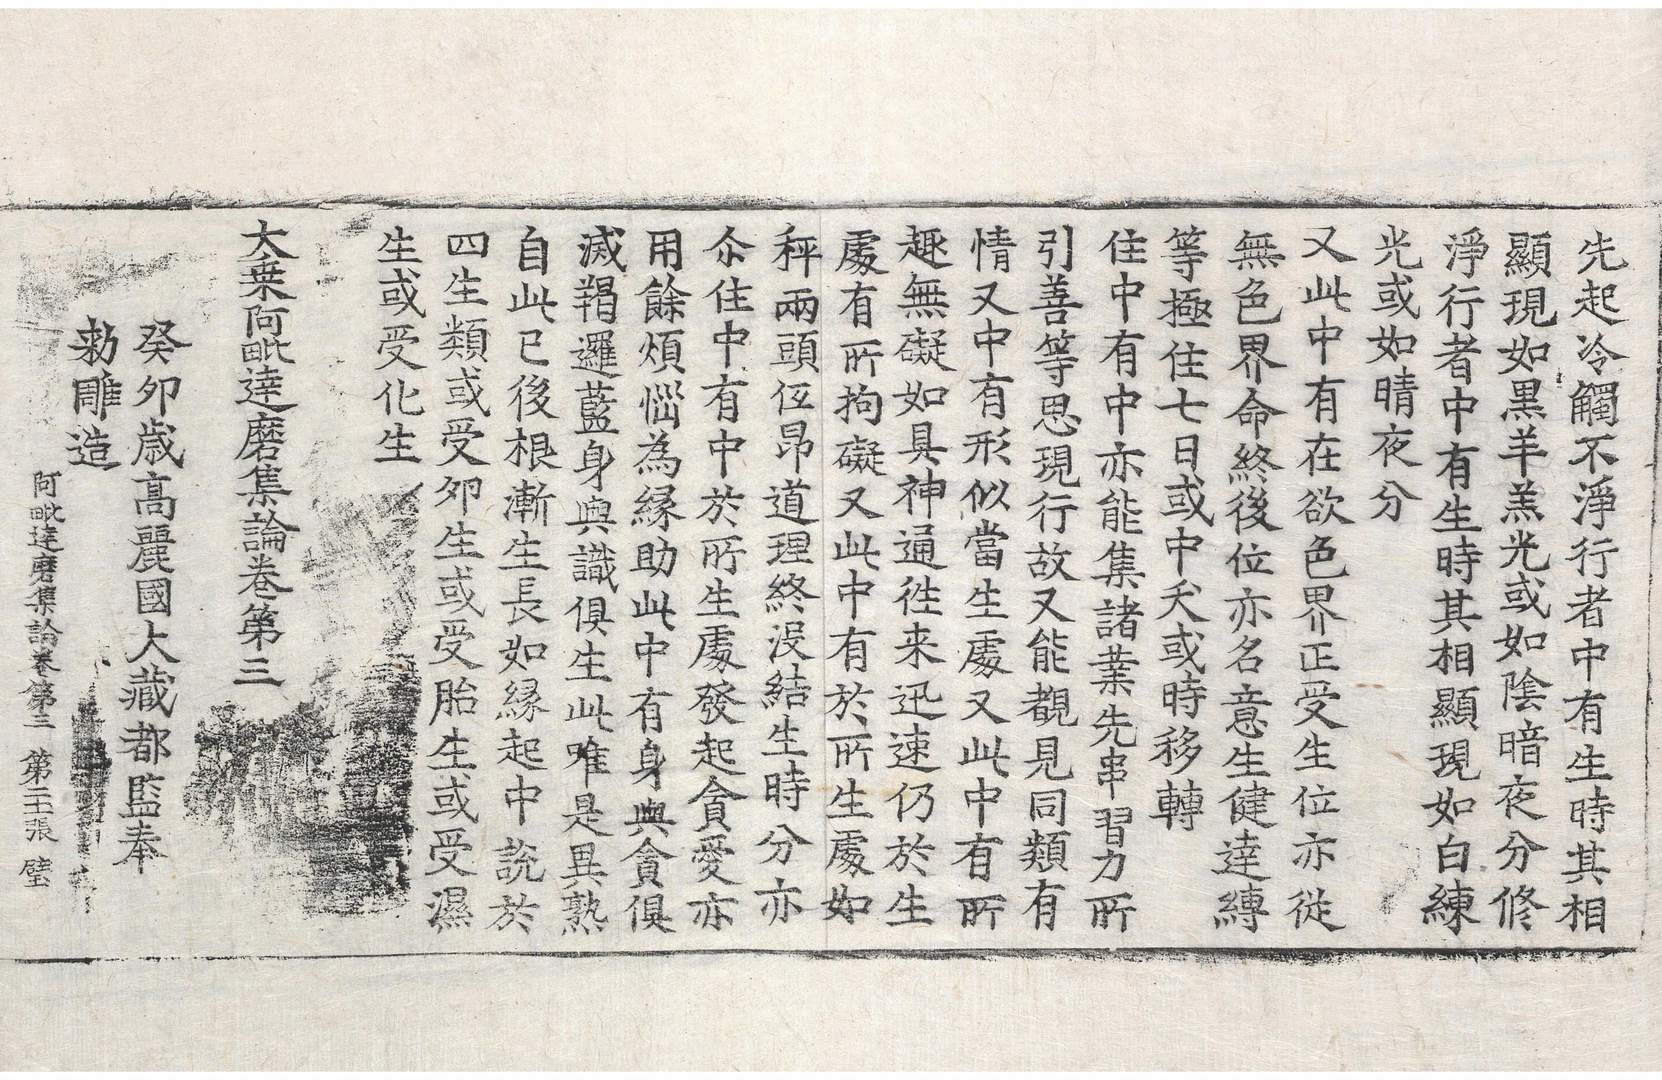 先起冷觸不淨行者中有生時其相
顯現如黑羊羔光或如陰暗夜分修
淨行者中有生時其相顯現如白練
光或如晴夜分
又此中有在欲色界正受生位亦從
無色界命終後位亦名意生健達縛
等極住七日或中夭或時移轉
住中有中亦能集諸業先串習力所
引善等思現行故又能覩見同類有
情又中有形似當生處又此中有所
趣無礙如具神通往来迅速仍於生
處有所拘礙又此中有於所生處如
秤兩頭低昂道理終没結生時分亦
尒住中有中於所生處發起貪愛亦
用餘煩惱為緣助此中有身與貪俱
滅羯邏藍身與識俱生此唯是異熟
自此已後根漸生長如緣起中說於
四生類或受卵生或受胎生或受濕
生或受化生
大乗阿毗達磨集論卷第三
癸卯歲高麗國大藏都監奉
勑雕造
阿毗達磨集論卷第三 第二十張 璧